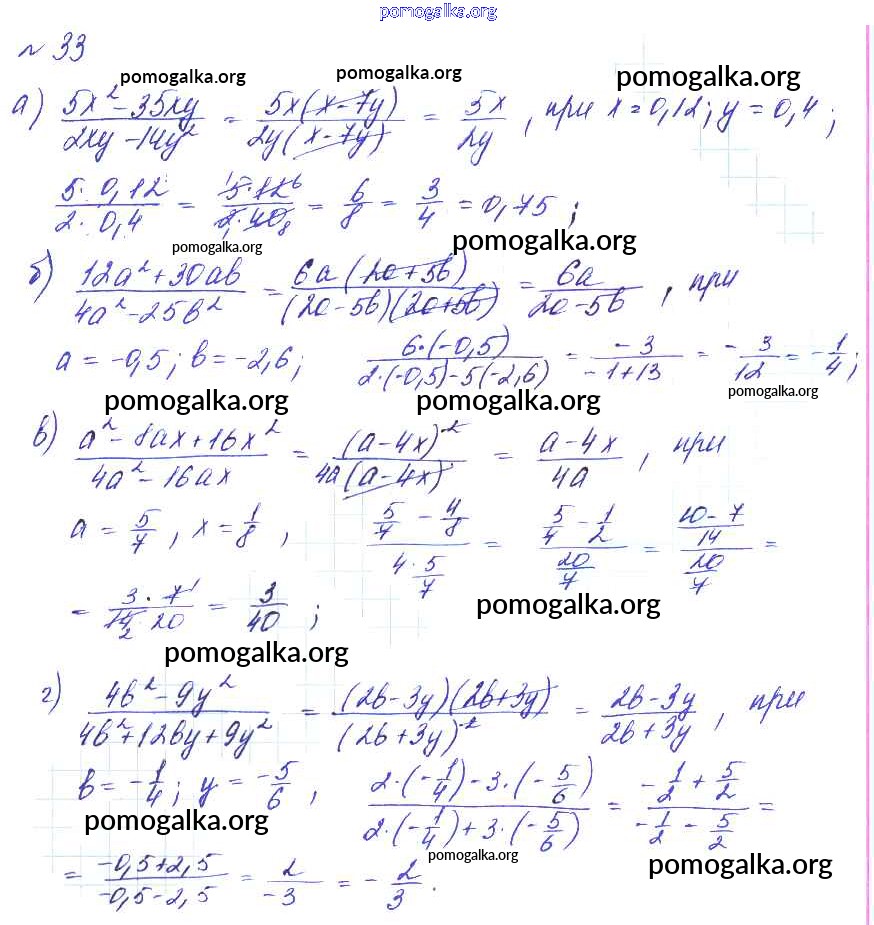 pomogalka.org
№ 33
pomogalka.org pomogalka.org pomogalka.org
а) (5x² - 35xy)/(2xy - 14y²) = (5x(x - 7y))/(2y(x - 7y)) = 5x/2y , при x = 0,12; y = 0,4 ;
(5 · 0,12)/(2 · 0,4) = (5 · 12)/(2 · 40) = 6/8 = 3/4 = 0,75 ;
pomogalka.org pomogalka.org
б) (12a² + 30ab)/(4a² - 25b²) = (6a(2a + 5b))/((2a - 5b)(2a + 5b)) = 6a/(2a - 5b) , при
a = -0,5 ; b = -2,6 ; (6·(-0,5))/(2·(-0,5) - 5(-2,6)) = -3/(-1 + 13) = -3/12 = -1/4 ;
pomogalka.org pomogalka.org pomogalka.org
в) (a² - 8ax + 16x²)/(4a² - 16ax) = (a - 4x)²/(4a(a - 4x)) = (a - 4x)/4a , при
a = 5/7 , x = 1/8 , (5/7 - 4/8)/(4 · 5/7) = (5/7 - 1/2)/(20/7) = ((10 - 7)/14)/(20/7) =
= (3 · 7)/(14 · 20) = 3/40 ;
pomogalka.org
pomogalka.org
г) (4b² - 9y²)/(4b² + 12by + 9y²) = ((2b - 3y)(2b + 3y))/(2b + 3y)² = (2b - 3y)/(2b + 3y) , при
b = -1/4 ; y = -5/6 , (2·(-1/4) - 3·(-5/6))/(2·(-1/4) + 3·(-5/6)) = (-1/2 + 5/2)/(-1/2 - 5/2) =
pomogalka.org
= (-0,5 + 2,5)/(-0,5 - 2,5) = 2/-3 = -2/3 .
pomogalka.org pomogalka.org